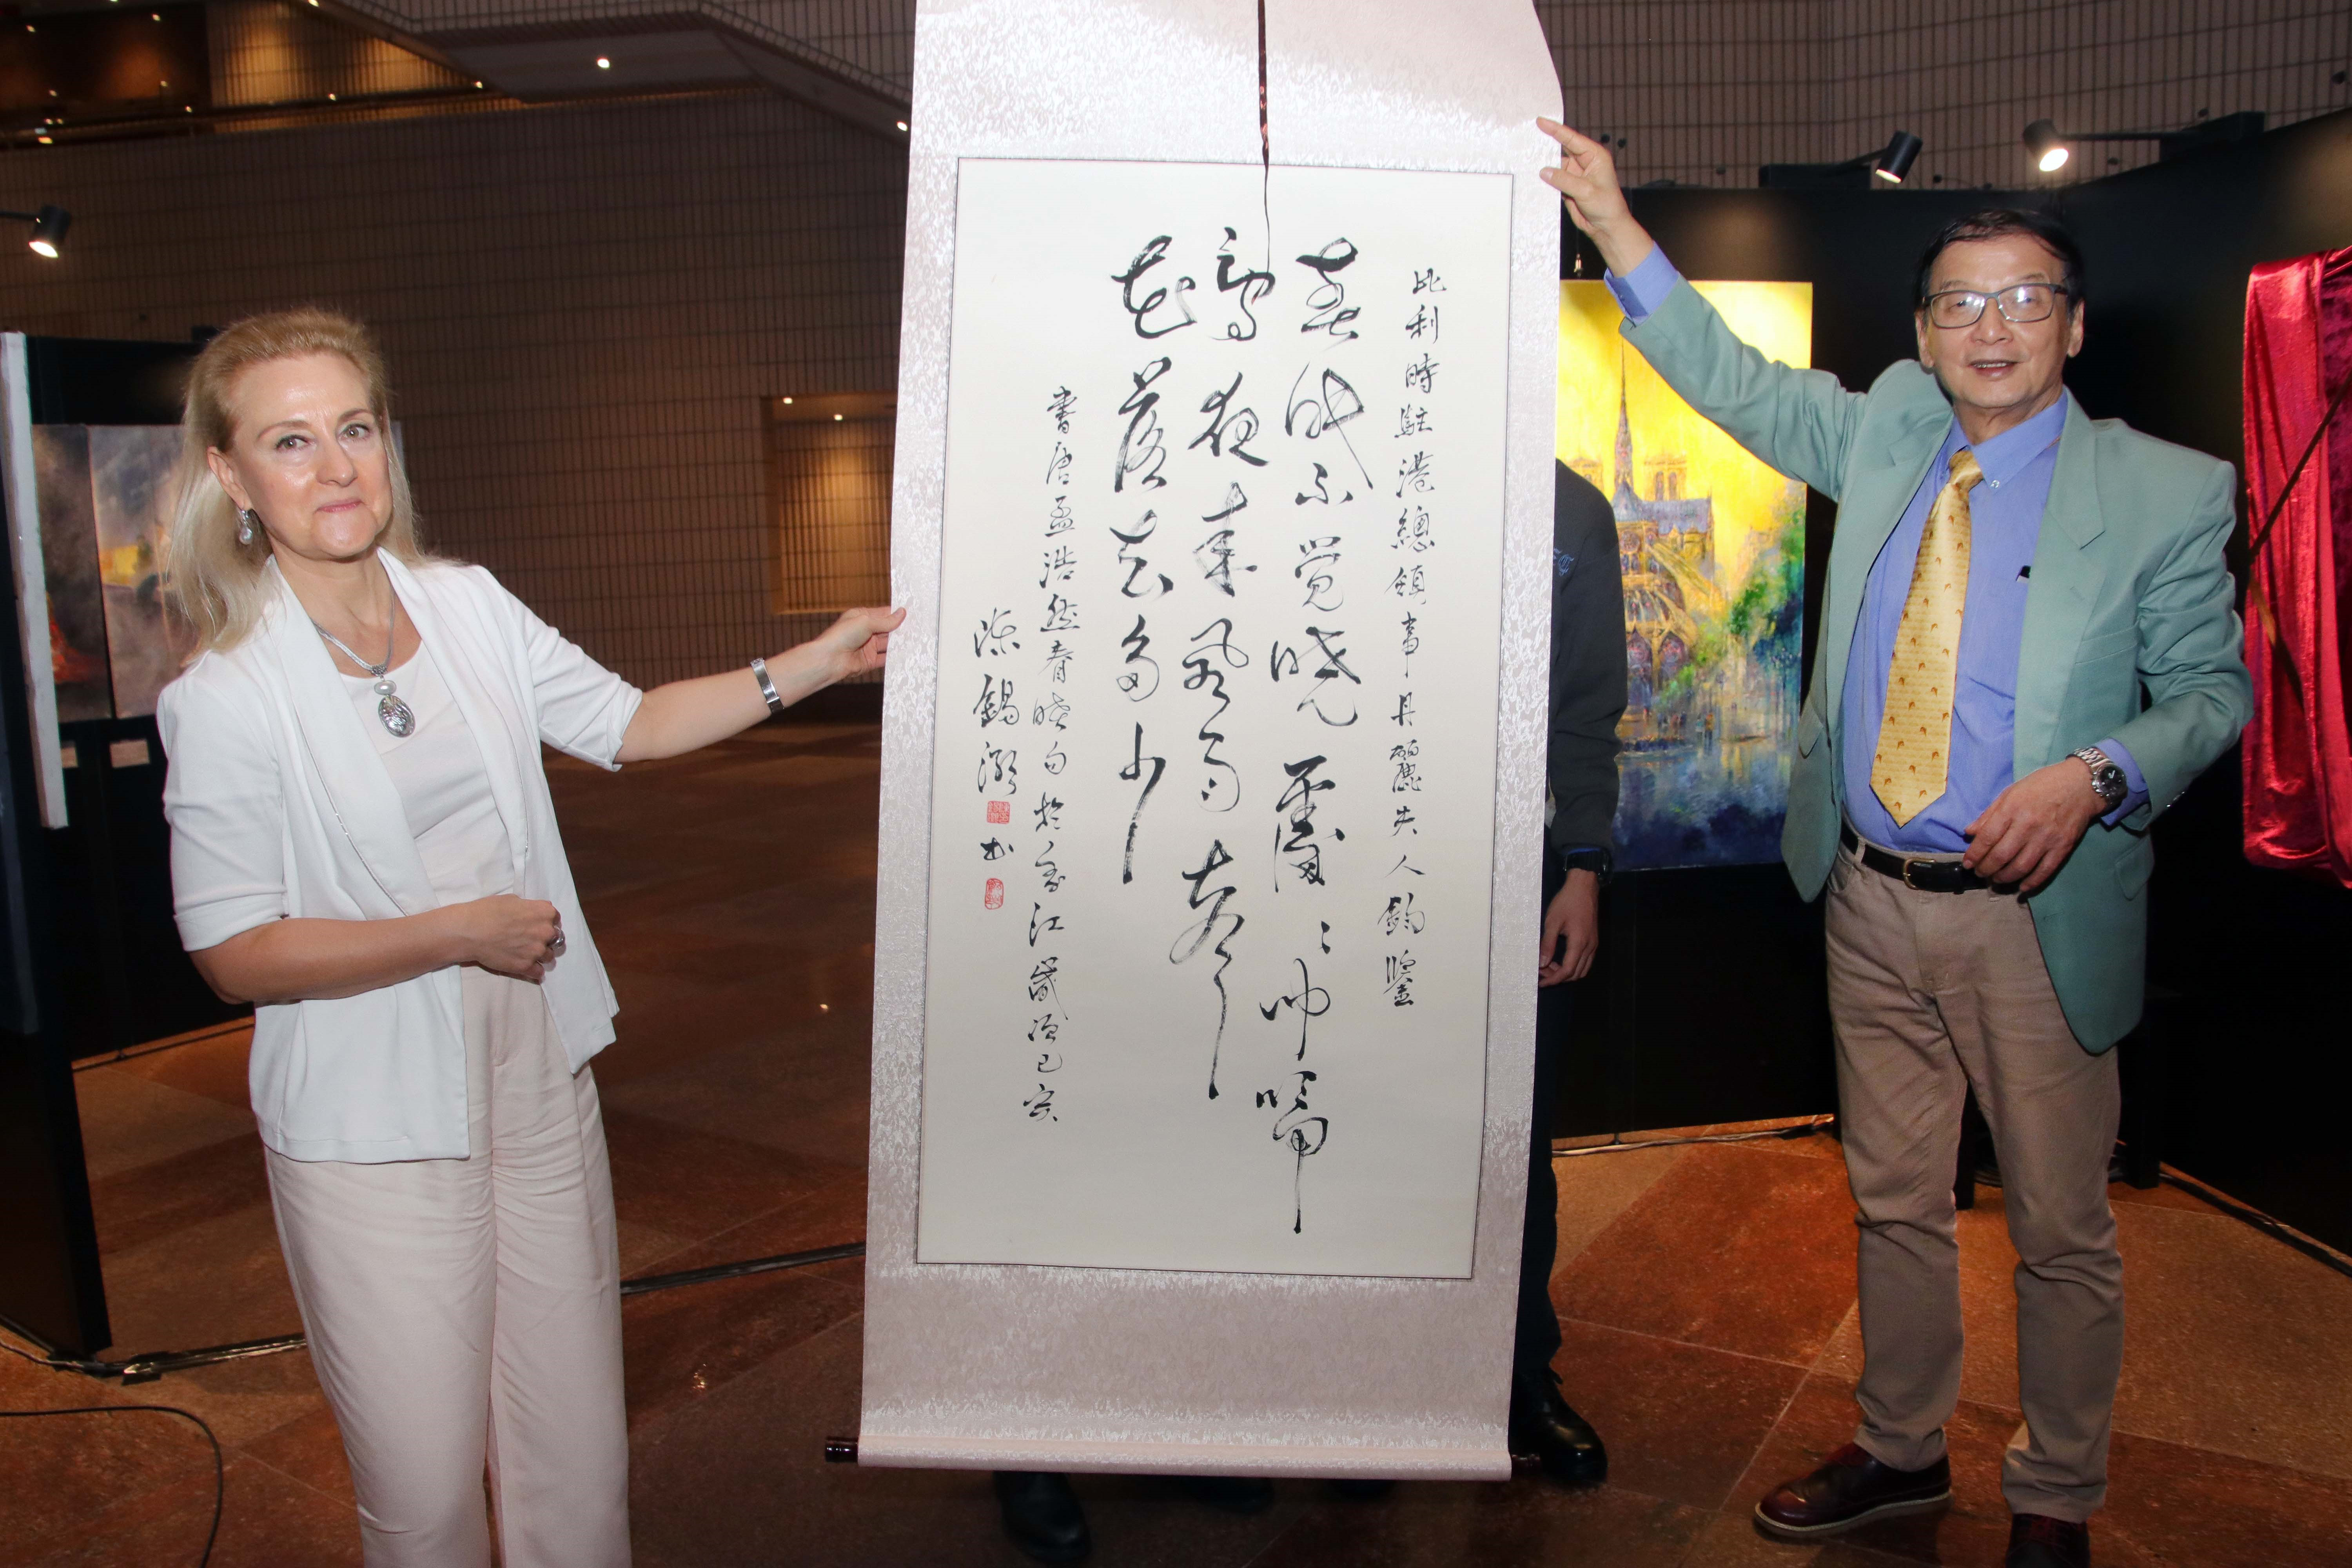 比利時駐港總領事丹麗夫人鈞鑒
春眠不覺曉處々聞啼
鳥夜來風雨聲
花落知多少
書唐孟浩然春曉句於香江歲次己亥
陳錫 書